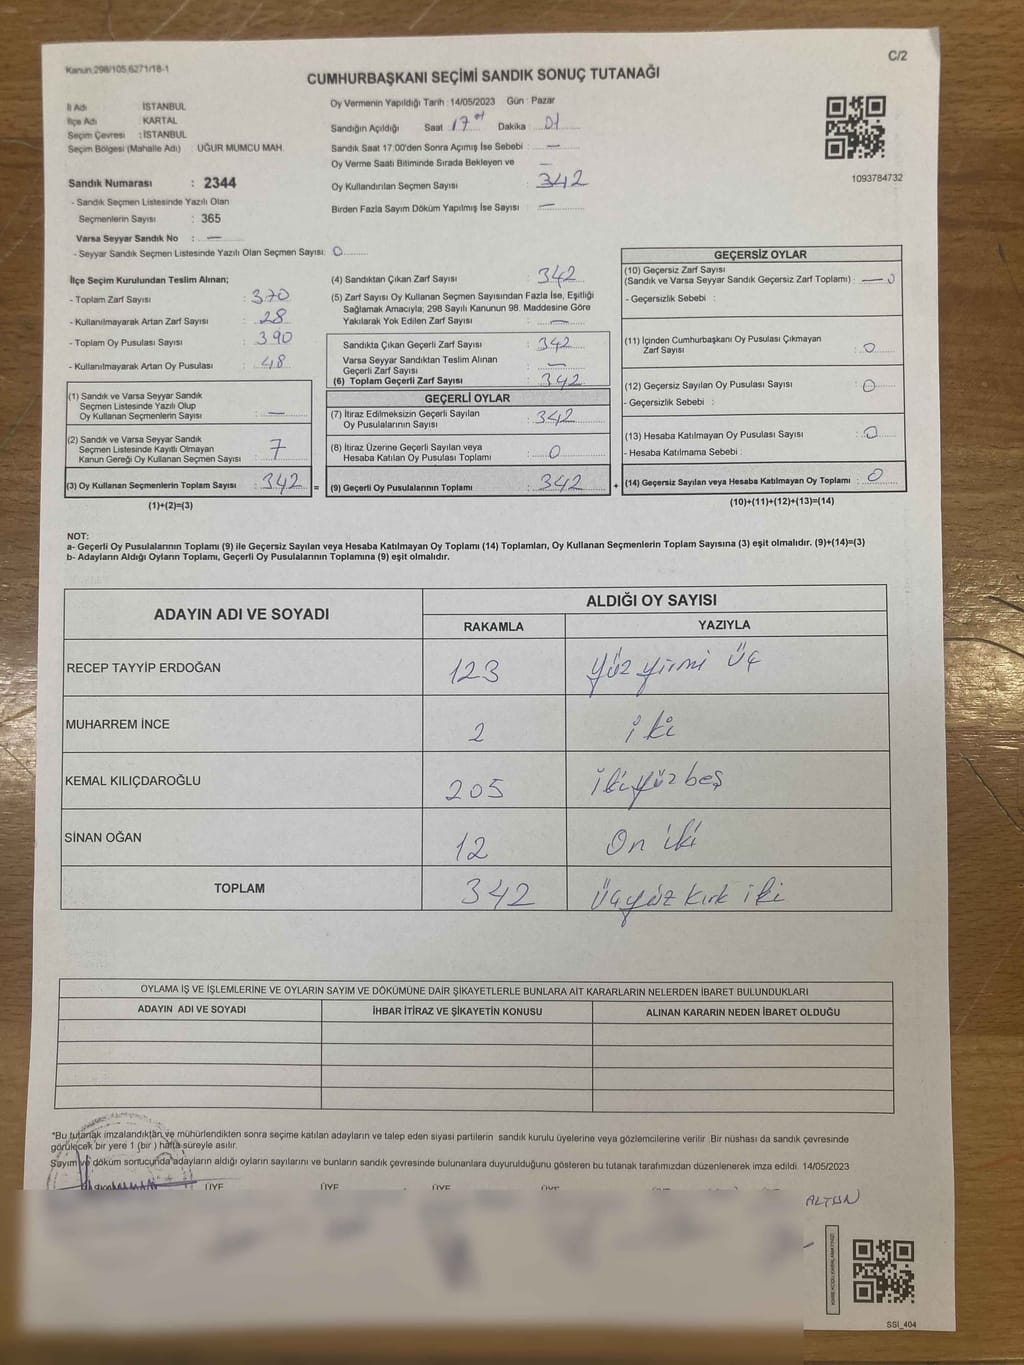 Kanun.298/105,6271/18-1
C/2
CUMHURBAŞKANI SEÇİMİ SANDIK SONUÇ TUTANAĞI
İl Adı İSTANBUL
İlçe Adı KARTAL
Seçim Çevresi : İSTANBUL
Seçim Bölgesi (Mahalle Adı) : UĞUR MUMCU MAH.
Sandık Numarası : 2344
- Sandık Seçmen Listesinde Yazılı Olan
Seçmenlerin Sayısı : 365
Varsa Seyyar Sandık No : —
- Seyyar Sandık Seçmen Listesinde Yazılı Olan Seçmen Sayısı: 0
Oy Vermenin Yapıldığı Tarih : 14/05/2023 Gün : Pazar
Sandığın Açıldığı Saat 17 Dakika 01
Sandık Saat 17:00'den Sonra Açımış İse Sebebi : —
Oy Verme Saati Bitiminde Sırada Bekleyen ve —
Oy Kullandırılan Seçmen Sayısı : 342
Birden Fazla Sayım Döküm Yapılmış İse Sayısı : —
1093784732
İlçe Seçim Kurulundan Teslim Alınan;
- Toplam Zarf Sayısı : 370
- Kullanılmayarak Artan Zarf Sayısı : 28
- Toplam Oy Pusulası Sayısı : 390
- Kullanılmayarak Artan Oy Pusulası : 48
(1) Sandık ve Varsa Seyyar Sandık
Seçmen Listesinde Yazılı Olup
Oy Kullanan Seçmenlerin Sayısı : —
(2) Sandık ve Varsa Seyyar Sandık
Seçmen Listesinde Kayıtlı Olmayan
Kanun Gereği Oy Kullanan Seçmen Sayısı : 7
(3) Oy Kullanan Seçmenlerin Toplam Sayısı : 342 =
(1)+(2)=(3)
(4) Sandıktan Çıkan Zarf Sayısı : 342
(5) Zarf Sayısı Oy Kullanan Seçmen Sayısından Fazla İse, Eşitliği
Sağlamak Amacıyla; 298 Sayılı Kanunun 98. Maddesine Göre
Yakılarak Yok Edilen Zarf Sayısı : —
Sandıkta Çıkan Geçerli Zarf Sayısı : 342
Varsa Seyyar Sandıktan Teslim Alınan
Geçerli Zarf Sayısı : —
(6) Toplam Geçerli Zarf Sayısı : 342
GEÇERLİ OYLAR
(7) İtiraz Edilmeksizin Geçerli Sayılan
Oy Pusulalarının Sayısı : 342
(8) İtiraz Üzerine Geçerli Sayılan veya
Hesaba Katılan Oy Pusulası Toplamı : 0
(9) Geçerli Oy Pusulalarının Toplamı : 342 +
GEÇERSİZ OYLAR
(10) Geçersiz Zarf Sayısı
(Sandık ve Varsa Seyyar Sandık Geçersiz Zarf Toplamı) : — 0
- Geçersizlik Sebebi :
(11) İçinden Cumhurbaşkanı Oy Pusulası Çıkmayan
Zarf Sayısı : 0
(12) Geçersiz Sayılan Oy Pusulası Sayısı : 0
- Geçersizlik Sebebi :
(13) Hesaba Katılmayan Oy Pusulası Sayısı : 0
- Hesaba Katılmama Sebebi :
(14) Geçersiz Sayılan veya Hesaba Katılmayan Oy Toplamı : 0
(10)+(11)+(12)+(13)=(14)
NOT:
a- Geçerli Oy Pusulalarının Toplamı (9) ile Geçersiz Sayılan veya Hesaba Katılmayan Oy Toplamı (14) Toplamları, Oy Kullanan Seçmenlerin Toplam Sayısına (3) eşit olmalıdır. (9)+(14)=(3)
b- Adayların Aldığı Oyların Toplamı, Geçerli Oy Pusulalarının Toplamına (9) eşit olmalıdır.
ADAYIN ADI VE SOYADI
ALDIĞI OY SAYISI
RAKAMLA YAZIYLA
RECEP TAYYİP ERDOĞAN 123 Yüz yirmi üç
MUHARREM İNCE 2 iki
KEMAL KILIÇDAROĞLU 205 İkiyüz beş
SİNAN OĞAN 12 On iki
TOPLAM 342 Üçyüz kırk iki
OYLAMA İŞ VE İŞLEMLERİNE VE OYLARIN SAYIM VE DÖKÜMÜNE DAİR ŞİKAYETLERLE BUNLARA AİT KARARLARIN NELERDEN İBARET BULUNDUKLARI
ADAYIN ADI VE SOYADI İHBAR İTİRAZ VE ŞİKAYETİN KONUSU ALINAN KARARIN NEDEN İBARET OLDUĞU
*Bu tutanak imzalandıktan ve mühürlendikten sonra seçime katılan adayların ve talep eden siyasi partilerin sandık kurulu üyelerine veya gözlemcilerine verilir. Bir nüshası da sandık çevresinde
görülecek bir yere 1 (bir) hafta süreyle asılır.
Sayım ve döküm sonucunda adayların aldığı oyların sayılarını ve bunların sandık çevresinde bulunanlara duyurulduğunu gösteren bu tutanak tarafımızdan düzenlenerek imza edildi. 14/05/2023
ÜYE ÜYE ÜYE ÜYE
ALTUN
SSI_404